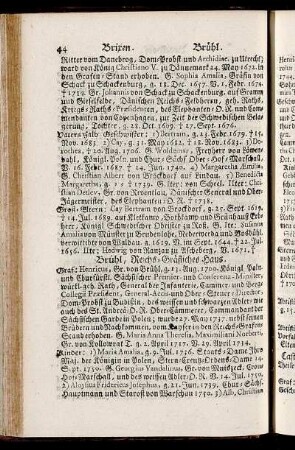 44 Brixen. Brühl.
Ritter vom Danebrog, Dom-Probst und Archidiac. zu Utrecht;
ward von König Christiano V. zu Dännemarck 24. May 1671. in
den Grafen-Stand erhoben. G. Sophia Amalia, Gräfin von
Schack zu Schackenburg, g. 11. Dec. 1657. V. 1. Febr. 1674.
Gr. Johannis von Schack zu Schackenburg, auf Gram
und Gieselfelde, Dänischen Reichs-Feldherrn, geh. Raths,
Kriegs-Raths-Præsidenten, des Elephanten-O. R. und Com-
mendanten von Copenhagen, zur Zeit der Schwedischen Bela-
gerung, Tochter, g. 22. Oct. 1609. † 27. Sept. 1676.
Vaters halb. Geschwister: 1) Bertram, g. 23. Febr. 1679. † 15.
Nov. 1685. 2) Cay, g. 31. May 1681. † 22. Oct. 1686. 3) Bro-
Gem. Wolfgang von Schwe-
dahl, Königl. Poln. und Chur-Sächs. Ober-Hof-Marschall,
V. 16. Febr. 1687 † 14. Jul. 1740. 4) Margaretha Amalia,
G. Christian Albert von Brockdorf auf Emkan. 5) Benedicta
Margaretha, g. 1739.
Christian Detlev, Gr. von Reventlau, Dänischer General und Ober-
Jägermeister, des Elephanten-O. R. † 1736.
Groß-Eltern: Cay Bertram von Brockdorf, g. 25. Sept. 1619. †
14. Jul. 1689. auf Kletkamp, Bothkamp und Grünhauß Erb-
herr, Königl. Schwedischer Obrister zu Roß. G. 1671.
Amalia von Münster
verwittibte von Walldau, g. 1619. V. im Sept. 1644. † 22. Jul.
1656. Uter: Hedwig von Ranzau
Brühl, Reichs-Gräfliches Haus.
Graf: Henricus, Gr. von Brühl, g. 13. Aug. 1700. Königl. Poln.
und Churfürstl. Sächsischer Premier- und Conferenz-Minister,
würckl. geh. Rath, General der Infanterie, Cammer- und Berg-
Collegii Præsident, General-Accis- und Ober-Steuer-Director,
Dom-Probst zu Budissin, des weissen Adler-Ordens Ritter wie
auch des St. Andreä-O. R. Ober-Cämmerer, Commandant der
Sächsischen Garden in Polen; wurde 27. May 1737. nebst seinen
Brüdern und Nachkommen, vom Kayser in den Reichs-Grafen-
Stand erhoben. G. Maria Anna Theresia, Maximiliani Norberti,
Gr. von Kollowrat T. g. 2. April 1717. V. 29. April 1734.
Kinder: 1) Maria Amalia, g. 9. Jul. 1736. Staats-Dame Ihro
Maj. der Königin in Polen, Stern-Creutz-Ordens-Dame 14.
Sept. 1750. G. Georgius Vandalinus, Gr. von Mniszeck, Cron-
Hof-Marschall, des weissen Adler-O. R. V. 14. Jul. 1750.
2) Aloysius Fridericus Josephus, g. 31. Jun. 1739. Chur-Sächs.
Hauptmann und Starost von Warschau 1750. 3) Alb. Christian